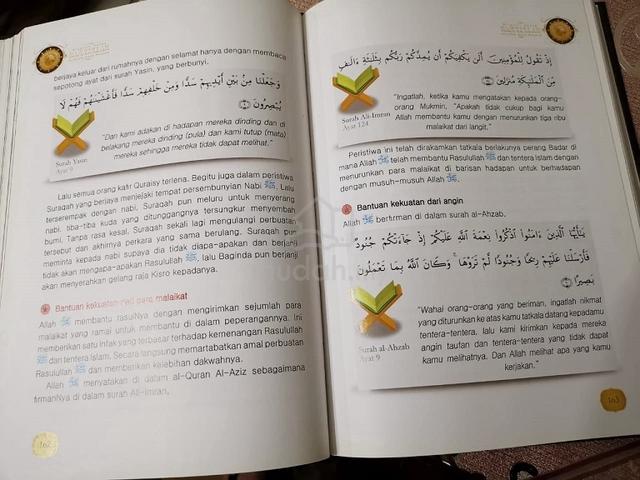 berjaya keluar dari rumahnya dengan selamat hanya dengan membaca
sepotong ayat dari surah Yasin, yang berbunyi.
وَجَعَلْنَا مِنْ بَيْنِ أَيْدِيهِمْ سَدًّا وَمِنْ خَلْفِهِمْ سَدًّا فَأَغْشَيْنَاهُمْ فَهُمْ لَا
يُبْصِرُونَ
"Dan kami adakan di hadapan mereka dinding dan di
belakang mereka dinding (pula) dan kami tutup (mata)
mereka sehingga mereka tidak dapat melihat."
Surah Yasin
Ayat 9
Lalu semua orang kafir Quraisy terlena. Begitu juga dalam peristiwa
Suraqah yang berjaya menjejaki tempat persembunyian Nabi ﷺ. Lalu
terserempak dengan nabi. Suraqah pun meluru untuk menyerang
nabi, tiba-tiba kuda yang ditunggangnya tersungkur menyembah
bumi. Tanpa rasa kesal, Suraqah sekali lagi mengulangi perbuatan
tersebut dan akhirnya perkara yang sama berulang. Suraqah pun
meminta kepada nabi supaya dia tidak diapa-apakan dan berjanji
tidak akan mengapa-apakan Rasulullah ﷺ, lalu Baginda pun berjanji
akan menyerahkan gelang raja Kisro kepadanya.
Bantuan kekuatan dari para malaikat
Allah membantu rasulNya dengan mengirimkan sejumlah para
malaikat yang ramai untuk membantu di dalam peperangannya. Ini
memberikan satu intak yang terbesar terhadap kemenangan Rasulullah
ﷺ dan tentera Islam. Secara langsung memartabatkan amal perbuatan
Rasulullah ﷺ dan memberikan kelebihan dakwahnya.
Allah menyatakan di dalam al-Quran Al-Aziz sebagaimana
firmanNya di dalam surah Ali-Imran.
162
إِذْ تَقُولُ لِلْمُؤْمِنِينَ أَلَنْ يَكْفِيَكُمْ أَنْ يُمِدَّكُمْ رَبُّكُمْ بِثَلَاثَةِ ءَالَافٍ
مِنَ الْمَلَائِكَةِ مُنْزَلِينَ
"Ingatlah, ketika kamu mengatakan kepada orang-
orang Mukmin, "Apakah tidak cukup bagi kamu
Allah membantu kamu dengan menurunkan tiga ribu
malaikat dari langit."
Surah Ali-Imran
Ayat 124
Peristiwa ini telah dirakamkan tatkala berlakunya perang Badar di
mana Allah telah membantu Rasulullah ﷺ dan tentera Islam dengan
menurunkan para malaikat di barisan hadapan untuk berhadapan
dengan musuh-musuh Allah.
Bantuan kekuatan dari angin
Allah berfirman di dalam surah al-Ahzab.
يَٰٓأَيُّهَا الَّذِينَ ءَامَنُوا اذْكُرُوا نِعْمَةَ اللَّهِ عَلَيْكُمْ إِذْ جَآءَتْكُمْ جُنُودٌ
فَأَرْسَلْنَا عَلَيْهِمْ رِيحًا وَجُنُودًا لَّمْ تَرَوْهَا ۚ وَكَانَ اللَّهُ بِمَا تَعْمَلُونَ
بَصِيرًا
"Wahai orang-orang yang beriman, ingatlah nikmat
yang diturunkan ke atas kamu tatkala datang kepadamu
tentera-tentera, lalu kami kirimkan kepada mereka
angin taufan dan tentera-tentera yang tidak dapat
kamu melihatnya. Dan Allah melihat apa yang kamu
kerjakan."
Surah al-Ahzab
Ayat 9
163